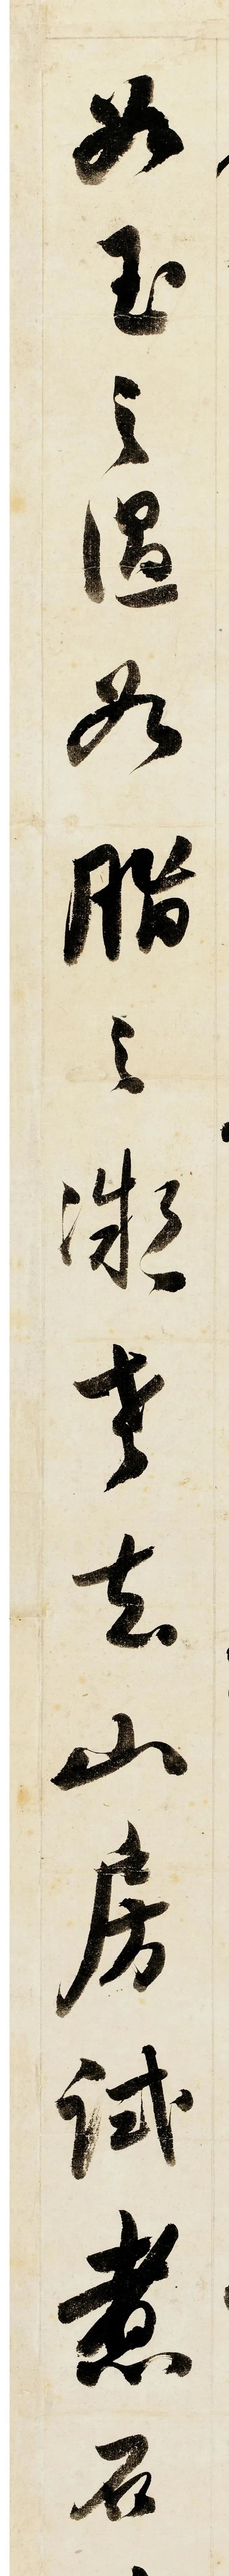 如玉之温如脂之凝老去山房试煮石